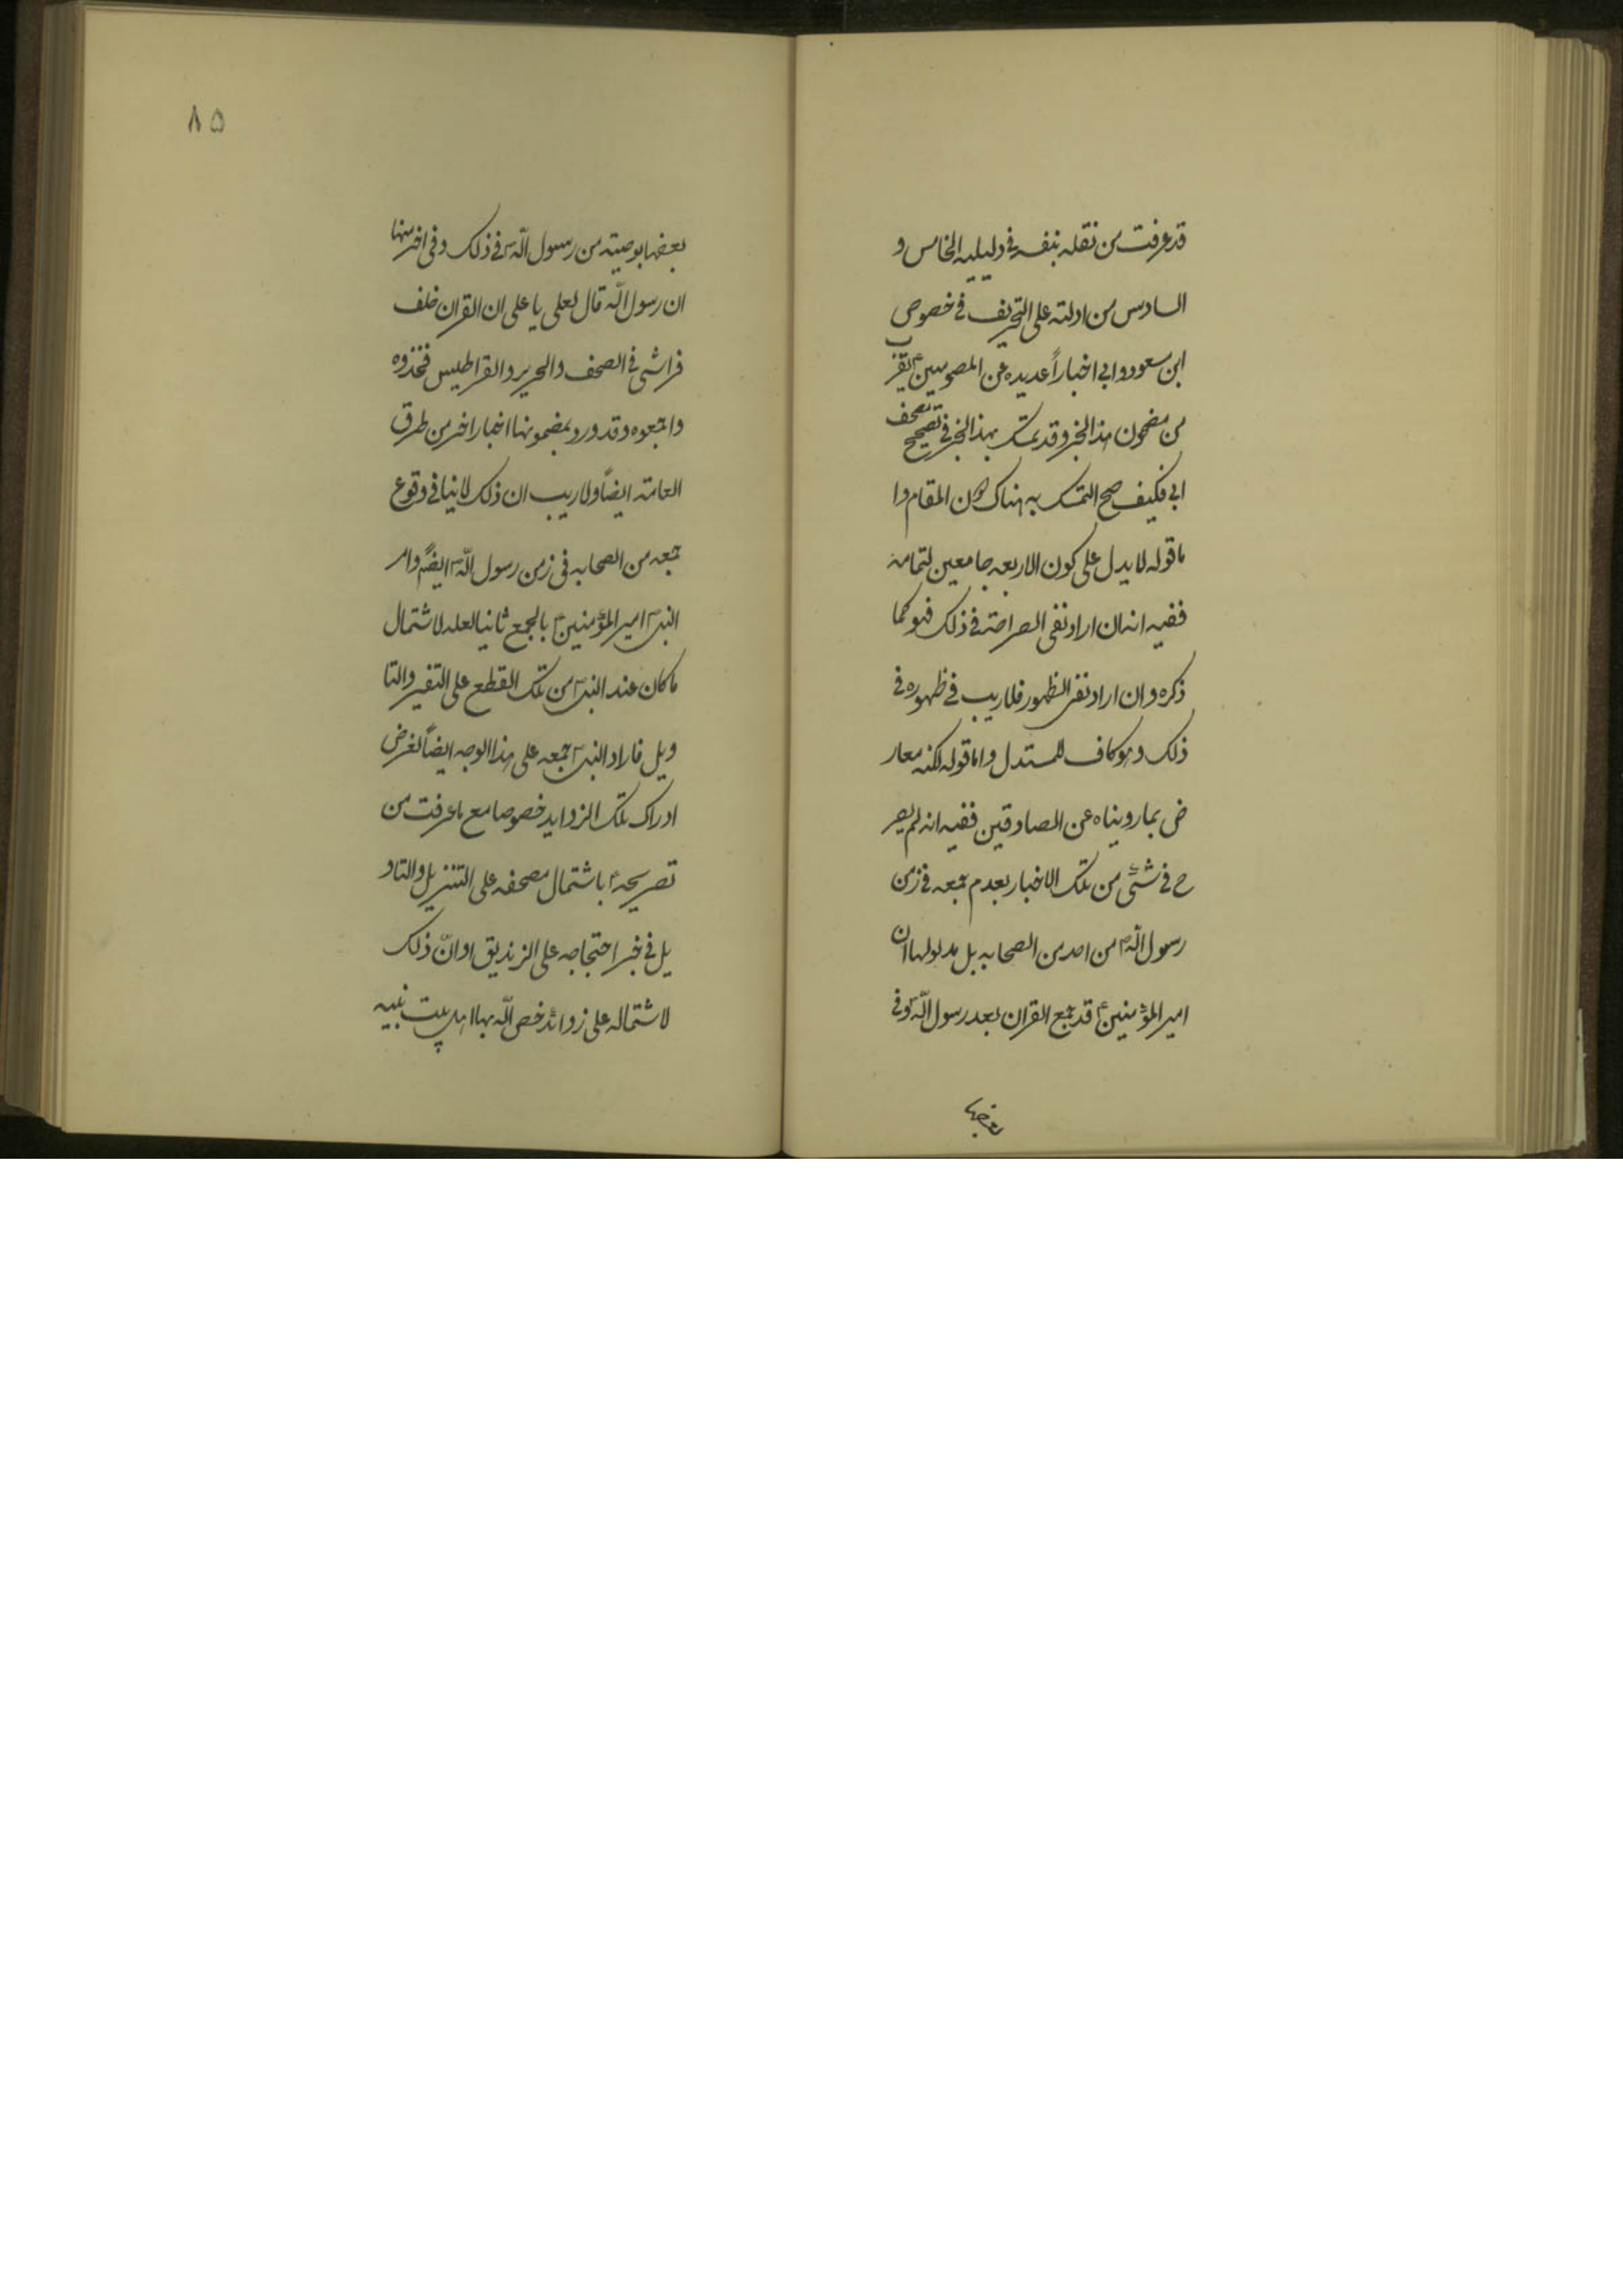 قد عرفت من نقله بنفسه في دليليه الخامس و
السادس من ادلته على التحريف في خصوص
ابن مسعود وابي اخباراً عديده عن المعصومين ع يقرب
من مضمون هذا الخبر وقد تمسك بهذا الخبر في تصحيح مصحف
ابي فكيف صح التمسك به هناك دون المقام وا
ما قوله لا يدل على كون الاربعه جامعين لتمامه
ففيه انه ان اراد نفى الصراحته في ذلك فهو كما
ذكره وان اراد نفى الظهور فلا ريب في ظهوره في
ذلك وهو كاف للمستدل واما قوله لكنه معار
ض بما رويناه عن الصادقين ففيه انه لم يصر
ح في شئ من تلك الاخبار بعدم جمعه في زمن
رسول اللّه ص من احد من الصحابه بل مدلولها ان
امير المؤمنين ع قد جمع القران بعد رسول اللّه ص وفي
بعضها
۸۵
بعضها بوصيته من رسول اللّه ص في ذلك وفي اخر منها
ان رسول اللّه قال لعلى يا على ان القران خلف
فراشى في الصحف والحرير والقراطيس فخذوه
واجمعوه وقد ورد بمضمونها اخبار اخر من طرق
العامته ايضاً ولا ريب ان ذلك لا ينافي وقوع
جمعه من الصحابه فى زمن رسول اللّه ص ايضاً وامر
النبى ص امير المؤمنين ع بالجمع ثانيا لعله لاشتمال
ما كان عند النبى ص من تلك القطع على التفسير والتا
ويل فاراد النبى ص جمعه على هذا الوجه ايضاً لغرض
ادراك تلك الزوايد خصوصا مع ما عرفت من
تصريحه ع باشتمال مصحفه على التنزيل والتاو
يل في خبر احتجاجه على الزنديق او انّ ذلك
لاشتماله على زوائد خص اللّه بها اهل بيت نبيه